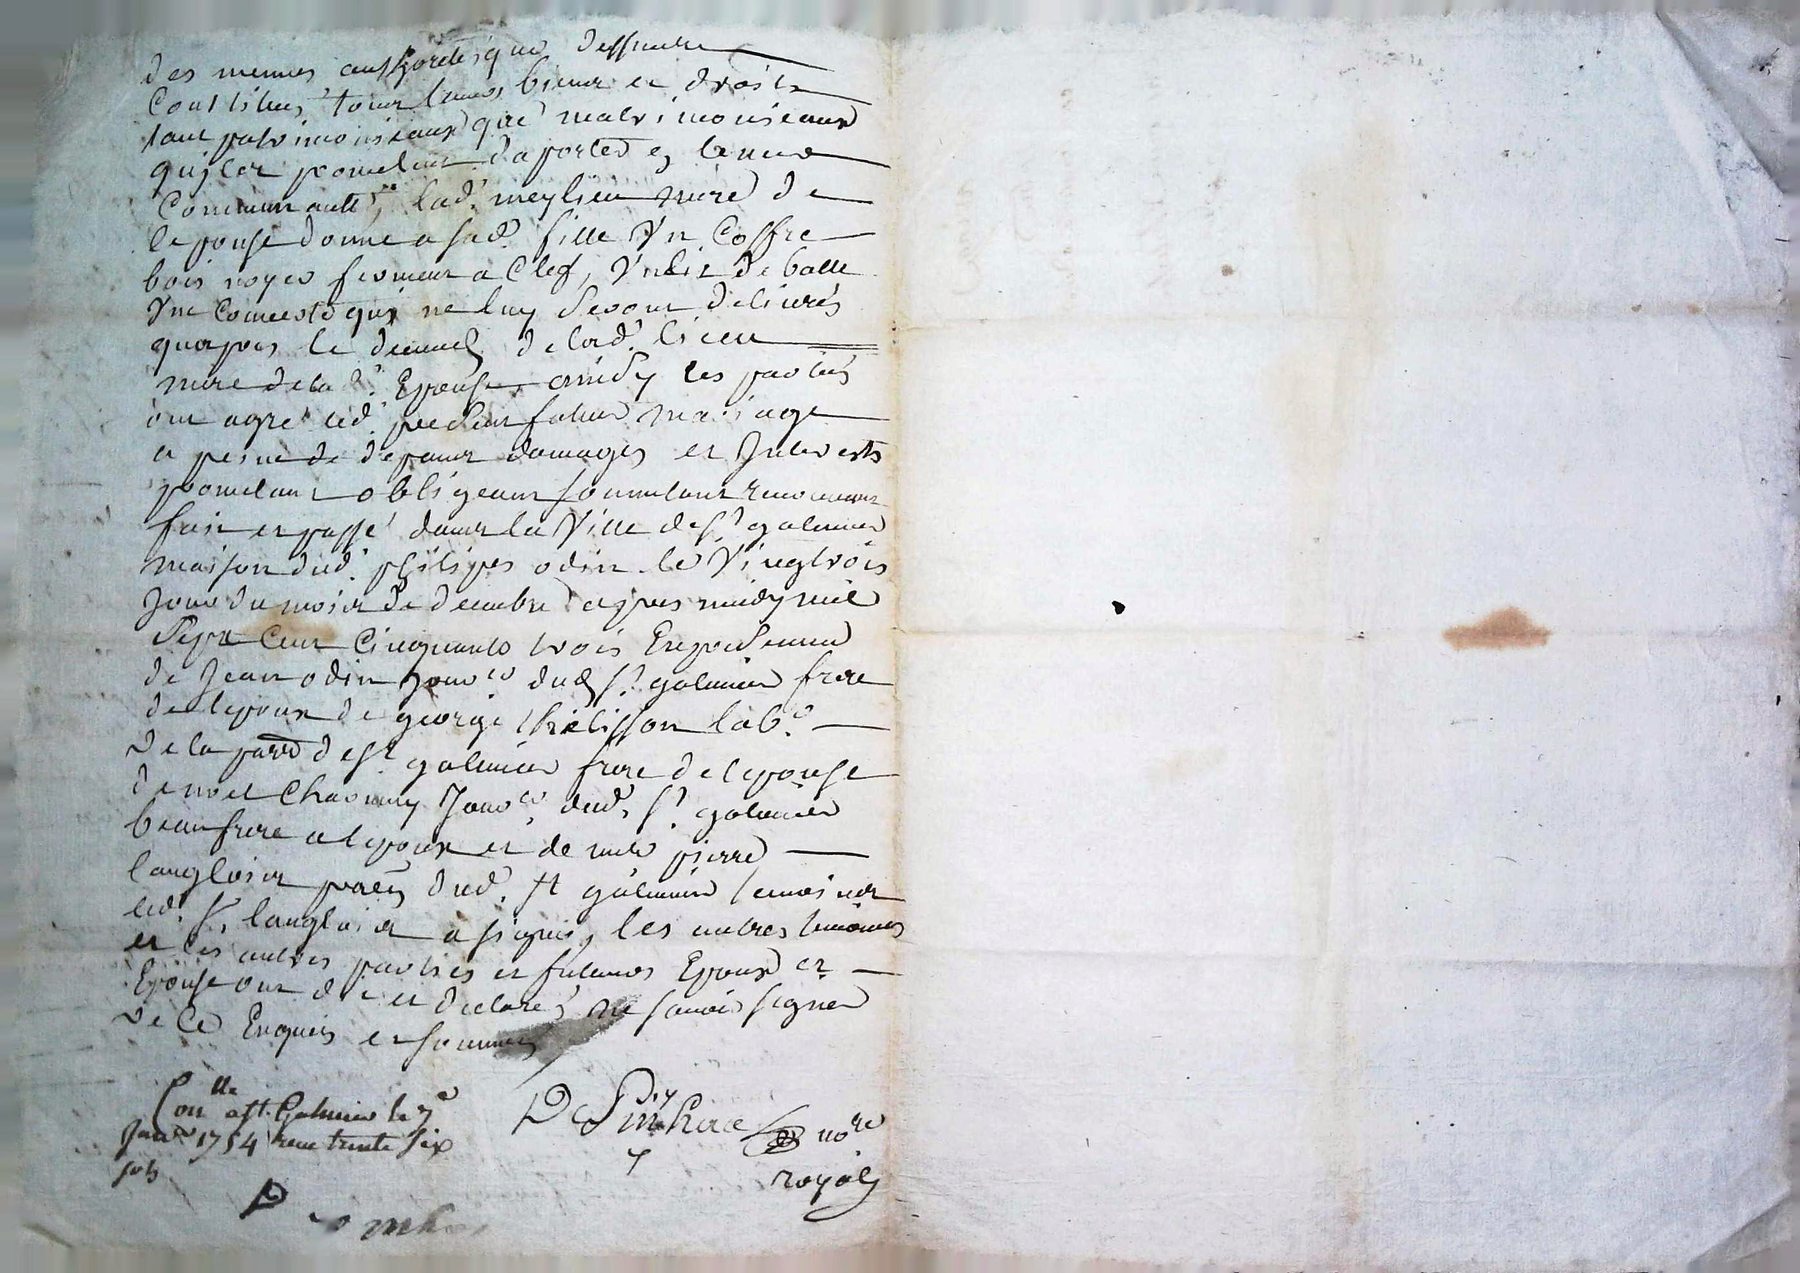 des memes authorités que dessus se
Constitue tous leurs biens et droits
tant patrimoniaux que matrimoniaux
qu'iles prometent d'aporter en leur
Communauté, lad. meylieu mere de
lepouse donne a sad. fille Un Coffre
bois noyer fermant a Clef, Un lit de balle
Une Couverte qui ne luy Seront delivrés
quapres le decues de lad. lieu
mere de la d. Epouse, ainsy les parties
ont agreé led. pnt futur mariage
a peine de depans domages et Interests
prometant obligeant soumetant renonceant
fait et passé dans la Ville de St galmier
maison dud. philipes odin le Vingtrois
Jour du mois de decembre apres midy mil
Sept Cent Cinquante trois En presence
de Jean odin Jour.er dud St galmier frere
de lepoux de george thelisson lab.r
de la parr de St galmier frere de lepouse
de noel Jour.er dud. St galmier
beaufrere a lepoux et de pierre
langlois dud. St galmier temoins
led. Sr langlois a signé, les autres temoins
et les autres parties et futurs Epoux et
Epouse ont dit et declaré ne savoir signer
de Ce Enquis et sommés
Con.lle a St. Galmier le 7e
Janv.r 1754 recu trente six
sols
no.re
royal